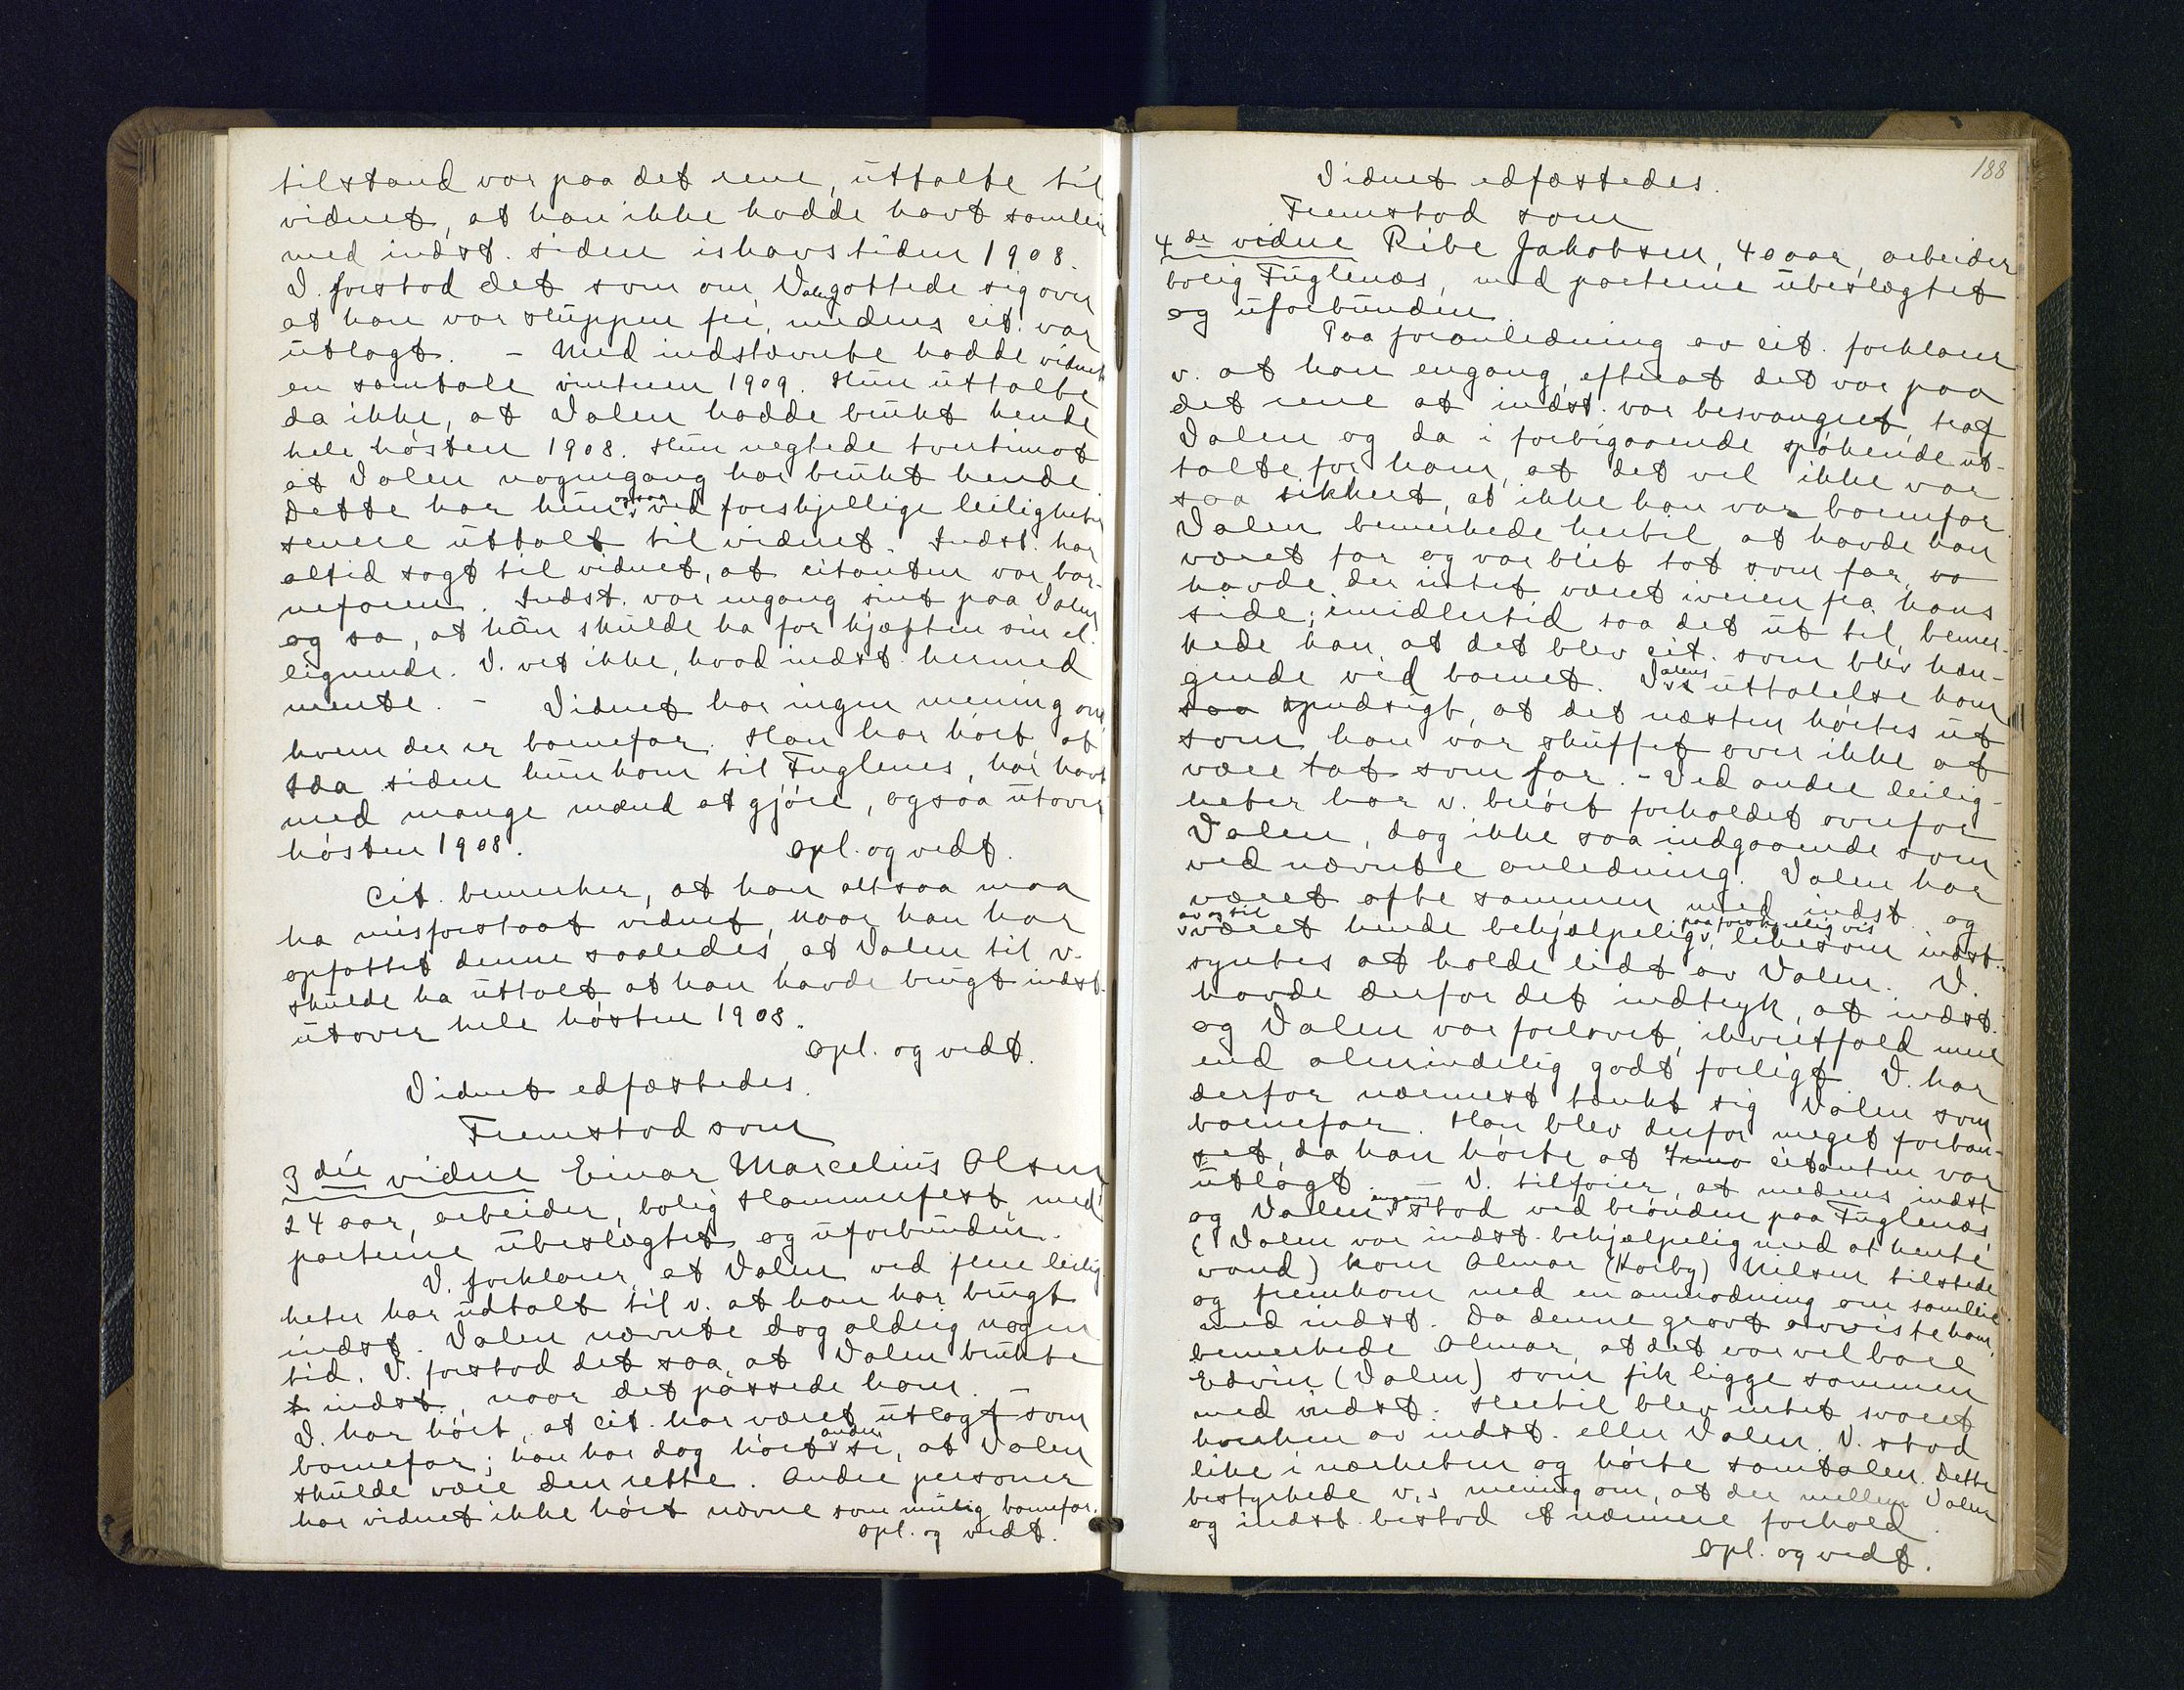 tilstand var paa det rene, uttalte til
vidnet, at han ikke hadde havt samleie
med indst. siden ishavstiden 1908.
V. forstod det som om Valen gottede sig over
at han var sluppen fri, medens cit. var
utlagt. – Med indstævnte hadde vidnet
en samtale vinteren 1909. Hun uttalte
da ikke, at Valen hadde brukt hende
hele høsten 1908. Hun negtede tvertimot
at Valen nogengang har brukt hende.
Dette har hun ogsaa ved forskjellige leiligheter
senere uttalt til vidnet. Indst. har
altid sagt til vidnet, at citanten var bar-
nefaren. Indst. var engang sint paa Valen
og sa, at han skulde ha for kjæften sin el.
lignende. V. vet ikke, hvad indst. hermed
mente. – Vidnet har ingen mening om
hvem der er barnefar. Han har hørt, at
Ida siden hun kom til Fuglenes, har havt
med mange mænd at gjøre, ogsaa utover
høsten 1908.
Opl. og vedt.
Cit. bemerker, at han altsaa maa
ha misforstaat vidnet, naar han har
opfattet denne saaledes, at Valen til v.
skulde ha uttalt at han havde brugt indst.
utover hele høsten 1908.
Opl. og vedt.
Vidnet edfæstedes.
Fremstod som
3die vidne Einar Marcelius Olsen
24 aar, arbeider, bolig Hammerfest, med
parterne ubeslægtet og uforbunden.
V. forklarer, at Valen ved flere leilig
heter har udtalt til v. at han har brugt
indst. Valen nævnte dog aldrig nogen
tid. V. forstod det saa, at Valen brukte
indst., naar det passede ham. –
V. har hørt, at cit. har været utlagt som
barnefar; han har dog hørt andre si, at Valen
skulde være den rette. Andre personer
har vidnet ikke hørt nævne som mulig barnefar.
Opl. og vedt.
188
Vidnet edfæstedes.
Fremstod som
4de vidne Ribe Jakobsen, 40 aar, arbeider
bolig Fuglenæs, med parterne ubeslægtet
og uforbunden.
Paa foranledning av cit. forklarer
v. at han engang, efterat det var paa
det rene at indst. var besvangret, traf
Valen og da i forbigaaende spøkende ut-
talte for ham, at det vel ikke var
saa sikkert, at ikke han var barnefar.
Valen bemerkede hertil, at havde han
været far og var blit tat som far, va
havde der intet været iveien fra hans
side; imidlertid saa det ut til, bemer-
kede han, at det blev cit. som blev hæn-
gende ved barnet. Valens uttalelse kom
saa spudsigt, at det næsten hørtes ut
som han var skuffet over ikke at
være tat som far. – Ved andre leilig-
heter har v. berørt forholdet overfor
Valen, dog ikke saa indgaaende som
ved nævnte anledning. Valen har
været ofte sammen med indst. og
av og til været hende behjælpelig paa forskjellig vis, likesom indst.
syntes at holde lidt av Valen. V.
havde derfor det indtryk, at indst.
og Valen var forlovet, ihvertfald mere
end almindelig godt forligt. V. har
derfor nærmest tænkt sig Valen som
barnefar. Han blev derfor meget forbau-
set, da han hørte at citanten var
utlagt. – V. tilføier, at medens indst
og Valen engang stod ved brønden paa Fuglenæs
(Valen var indst. behjælpelig med at hente
vand) kom Almar (Korby) Nilsen tilstede
og fremkom med en anmodning om samleie
med indst. Da denne grovt avviste ham,
bemerkede Almar, at det var vel bare
Edvin (Valen) som fik ligge sammen
med indst. Hertil blev intet svaret
hverken av indst. eller Valen. V. stod
like i nærheten og hørte samtalen. Dette
bestyrkede v.s mening om, at der mellem Valen
og indst. bestod et nærmere forhold.
Opl. og vedt.